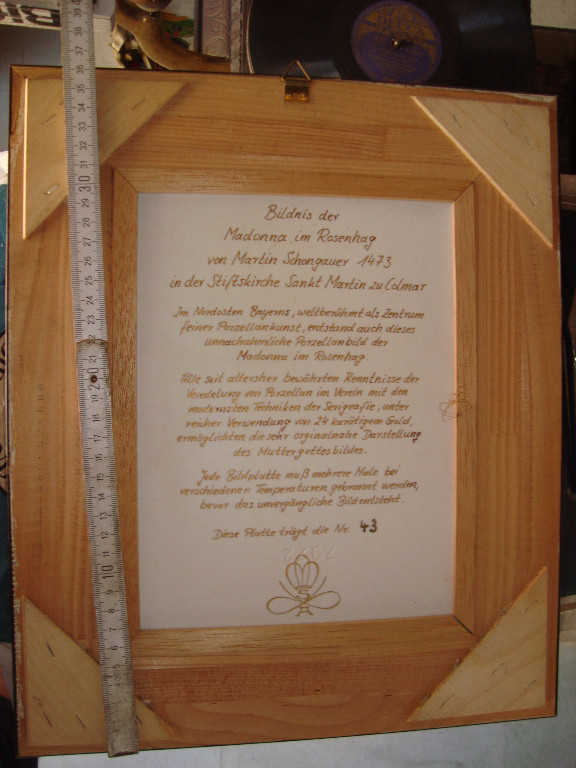 Bildnis der
Madonna im Rosenhag
von Martin Schongauer 1473
in der Stiftskirche Sankt Martin zu Colmar
Im Nordosten Bayerns, weltberühmt als Zentrum
feiner Porzellankunst, entstand auch dieses
unnachahmliche Porzellanbild der
Madonna im Rosenhag
Alle seit altersher bewährten Kenntnisse der
Veredelung von Porzellan im Verein mit den
modernsten Techniken der Serigrafie, unter
reicher Verwendung von 24 karätigem Gold,
ermöglichten die sehr orginalnahe Darstellung
des Muttergottesbildes.
Jede Bildplatte muß mehrere Male bei
verschiedenen Temperaturen gebrannt werden,
bevor das unvergängliche Bild entsteht.
Diese Platte trägt die Nr. 43